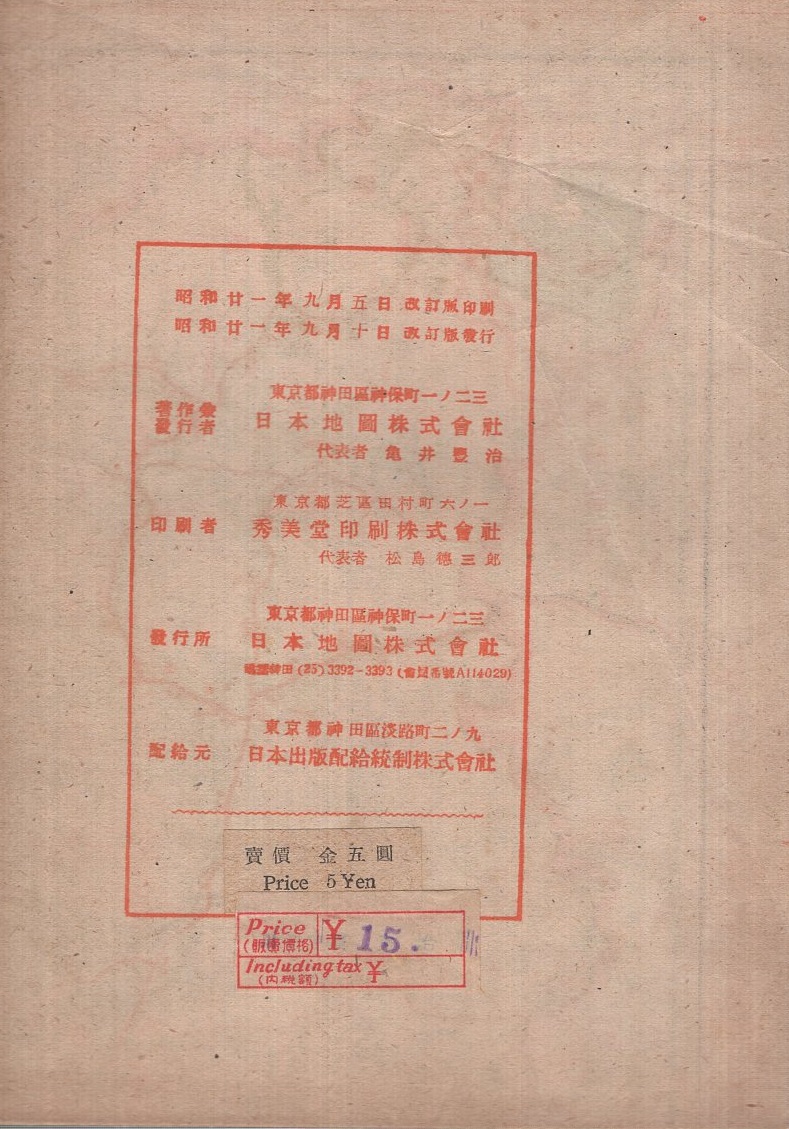 昭和廿一年九月五日 改訂版印刷
昭和廿一年九月十日 改訂版發行
東京都神田區神保町一ノ二三
著作兼
發行者
日本地圖株式會社
代表者 亀井豐治
東京都芝區田村町六ノ一
印刷者 秀美堂印刷株式會社
代表者 松島德三郎
東京都神田區神保町一ノ二三
發行所 日本地圖株式會社
神田(25)3392-3393(會員番號A114029)
東京都神田區淡路町二ノ九
配給元 日本出版配給統制株式會社
賣價 金五圓
Price 5Yen
Price ¥ 15.
(販賣價格)
Including tax ¥
(内税額)